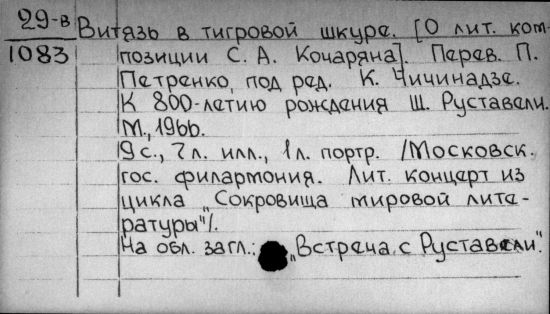 29-в Витязь в тигровой шкуре. [О лит. ком-
1083 позиции С. А. Кочаряна]. Перев. П.
Петренко, под ред. К. Чичинадзе.
К 800-летию рождения Ш. Руставели.
М., 1966.
9 с., 7 л. илл., 1 л. портр. /Московск.
гос. филармония. Лит. концерт из
цикла „Сокровища мировой лите-
ратуры"/.
На обл. загл.: „Встреча с Руставели".